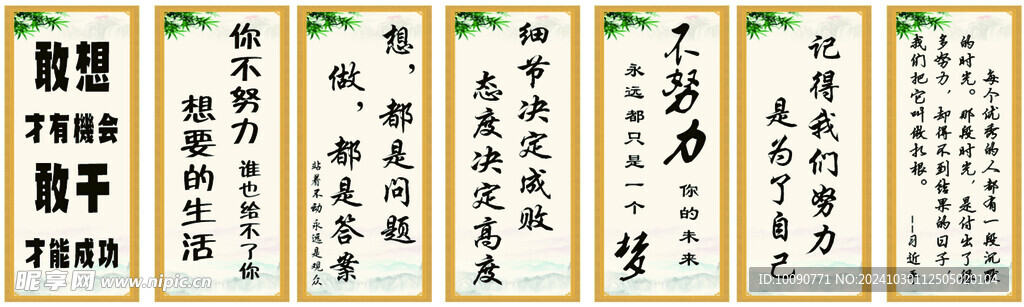 敢想
才有機会
敢干
才能成功
你不努力 谁也给不了你
想要的生活
想，都是问题
做，都是答案
站着不动 永远是观众
细节决定成败
态度决定高度
不努力
你的未来
永远都只是一个
梦
记得我们努力
是为了自己
每个优秀的人都有一段沉
的时光。那段时光，是付出了
多努力，却得不到结果的日子
我们把它叫做扎根。
--习近
昵享网 www.nipic.cn
ID:10090771 NO:20241030112505020104